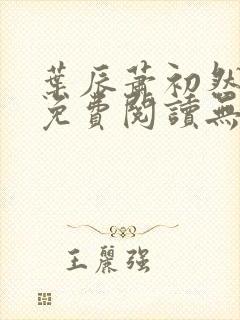 葉辰蕭初然
免費閱讀無
王麗強